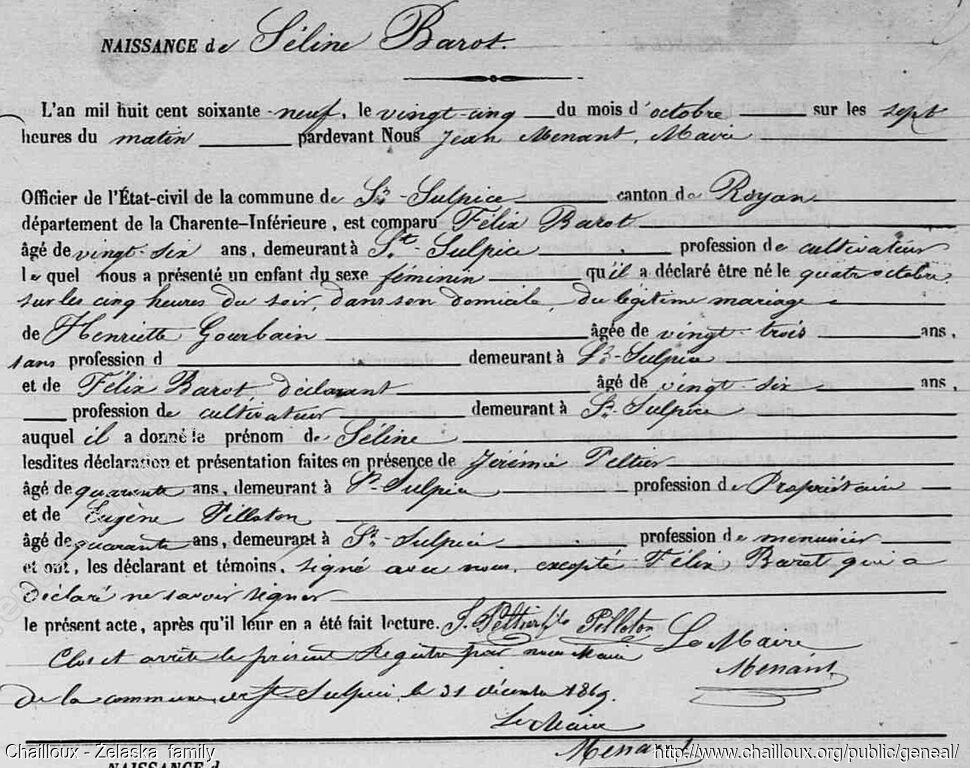 NAISSANCE de Séline Barot.
L'an mil huit cent soixante-neuf, le vingt-cinq du mois d'octobre sur les sept
heures du matin pardevant Nous Jean Menant, Maire
Officier de l'État-civil de la commune de St-Sulpice canton de Royan
département de la Charente-Inférieure, est comparu Félix Barot
âgé de vingt-six ans, demeurant à St. Sulpice profession de cultivateur
lequel nous a présenté un enfant du sexe féminin qu'il a déclaré être né le quatre octobre
sur les cinq heures du soir, dans son domicile, du légitime mariage
de Henriette Gourbain âgée de vingt-trois ans,
sans profession d demeurant à St-Sulpice
et de Félix Barot, déclarant âgé de vingt-six ans,
profession de cultivateur demeurant à St-Sulpice
auquel il a donné le prénom de Séline
lesdites déclaration et présentation faites en présence de Jérémie Peltier
âgé de quarante ans, demeurant à St-Sulpice profession de Propriétaire
et de Eugène Pilloton
âgé de quarante ans, demeurant à St-Sulpice profession de menuisier
et ont, les déclarant et témoins, signé avec nous, excepté Félix Barot qui a
déclaré ne savoir signer
le présent acte, après qu'il leur en a été fait lecture. J. Peltier fils Pilloton Le Maire
Menant
Clos et arrêté le présent Registre par nous Maire
de la commune de St Sulpice le 31 décembre 1869.
Le Maire
Menant
NAISSANCE d
Chailloux - Zelaska family
http://www.chailloux.org/public/geneal/